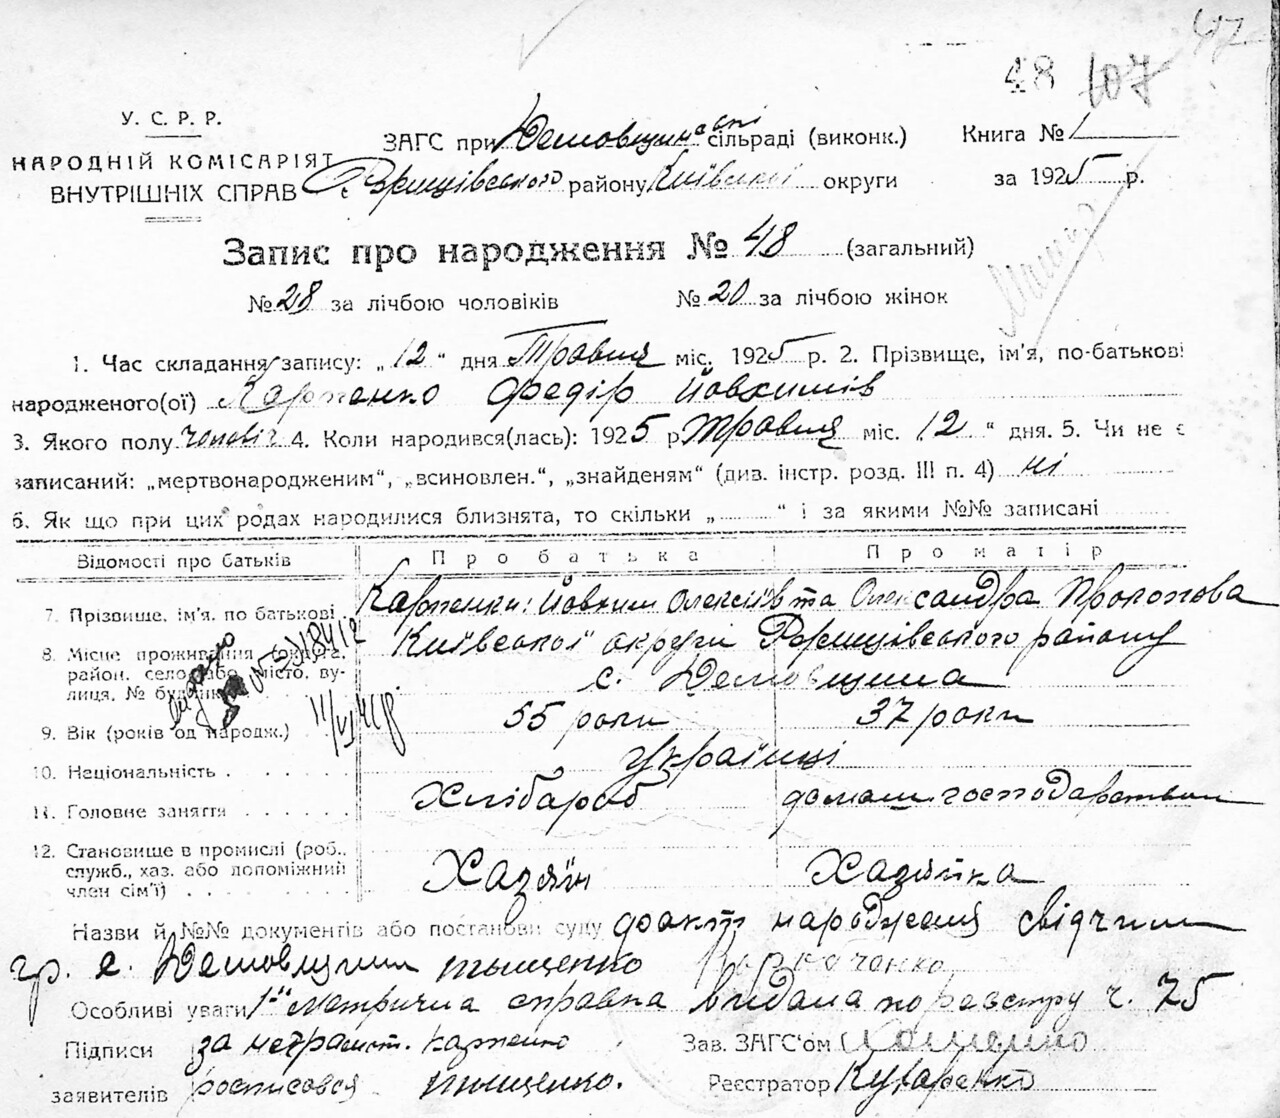 47
48 107
У. С. Р. Р.
НАРОДНІЙ КОМІСАРІЯТ
ВНУТРІШНІХ СПРАВ
ЗАГС при Демовщинській сільраді (виконк.) Книга № 1
Ржищівського району Київської округи за 1925 р.
Запис про народження № 48 (загальний)
№ 28 за лічбою чоловіків № 20 за лічбою жінок
1. Час складання запису: „12“ дня Травня міс. 1925 р. 2. Прізвище, ім'я, по-батькові
народженого(ої) Карпенко Федір Йовхимів
3. Якого полу чоловіч 4. Коли народився(лась): 1925 р. Травня міс. 12 “ дня. 5. Чи не є
записаний: „мертвонародженим“, „всиновлен.“, „знайденям“ (див. інстр. розд. III п. 4) ні
6. Як що при цих родах народилися близнята, то скільки „ “ і за якими №№ записані
Відомості про батьків Про батька Про матір
7. Прізвище, ім'я, по батькові Карпенки: Йовхим Олексіїв та Олександра Прокопова
8. Місце проживання (округа, район, село або місто, вулиця, № будинк Київської округи Ржищівського району
с. Демовщина
видано
9. Вік (років од народж.) 55 роки 37 роки
10. Національність Українці
11. Головне заняття Хлібароб домаш. господарством
12. Становище в промислі (роб., служб., хаз. або допоміжний член сім'ї) Хазяїн Хазяйка
Назви й №№ документів або постанови суду факт народження свідчили
гр. с. Демовщини Тыщенко
Особливі уваги 1ша Метрична справка видана по реєстру ч. 75
Підписи за неграмот. Карпенко Зав. ЗАГС'ом
заявителів росписовся Тыщенко. Реєстратор Кухаренко